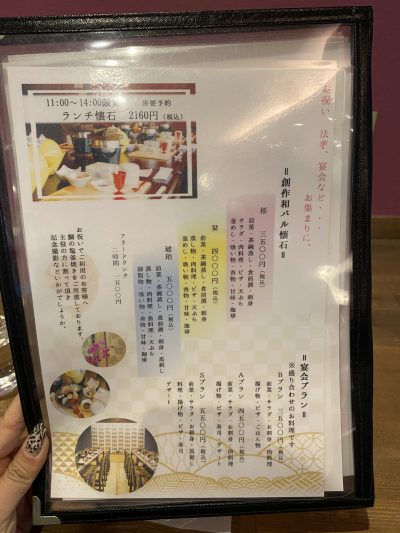 11:00〜14:00限定 ※要予約
ランチ懐石 2160円(税込)
お祝い、法事、宴会など・・・
お集まりに。
=創作和バル懐石=
桜 三五〇〇円(税込)
前菜・茶碗蒸し・食前酒・刺身
サラダ・肉料理・ピザ・天ぷら
釜めし・吸い物・香物・甘味・珈琲
栞 四〇〇〇円(税込)
前菜・茶碗蒸し・食前酒・刺身
蒸し物・肉料理・ピザ・天ぷら
釜めし・吸い物・香物・甘味・珈琲
琥珀 五〇〇〇円(税込)
前菜・茶碗蒸し・食前酒・刺身・馬刺し
蒸し物・肉料理・魚料理・天ぷら
御飯物・吸い物・香物・甘味・珈琲
フリードリンク
一時間 一五〇〇円
お祝いでご利用のお客様へ
鯛の塩釜焼きをご用意しております。
主役の方に割って頂き
記念撮影などいかがでしょうか。
=宴会プラン=
※盛り合わせのお料理です
Bプラン 三五〇〇円(税込)
前菜・サラダ・お刺身・肉料理
揚げ物・ピザ・ごはん物
Aプラン 四五〇〇円(税込)
前菜・サラダ・お刺身・肉料理
揚げ物・ピザ・寿司・デザート
Sプラン 五五〇〇円(税込)
前菜・サラダ・お刺身・馬刺し
肉料理・揚げ物・ピザ・寿司
デザート